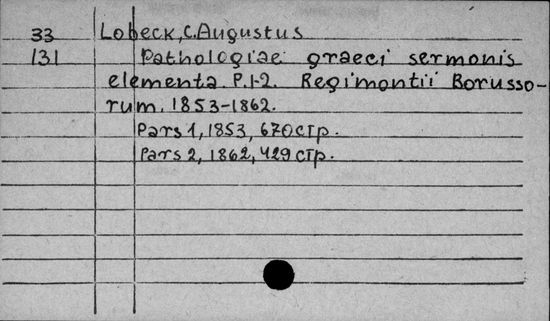 33 Lobeck, C. Augustus
131 Pathologiae graeci sermonis
elementa. P. 1-2. Regimontii Borusso-
rum. 1853-1862.
Pars 1, 1853, 670 стр.
Pars 2, 1862, 429 стр.